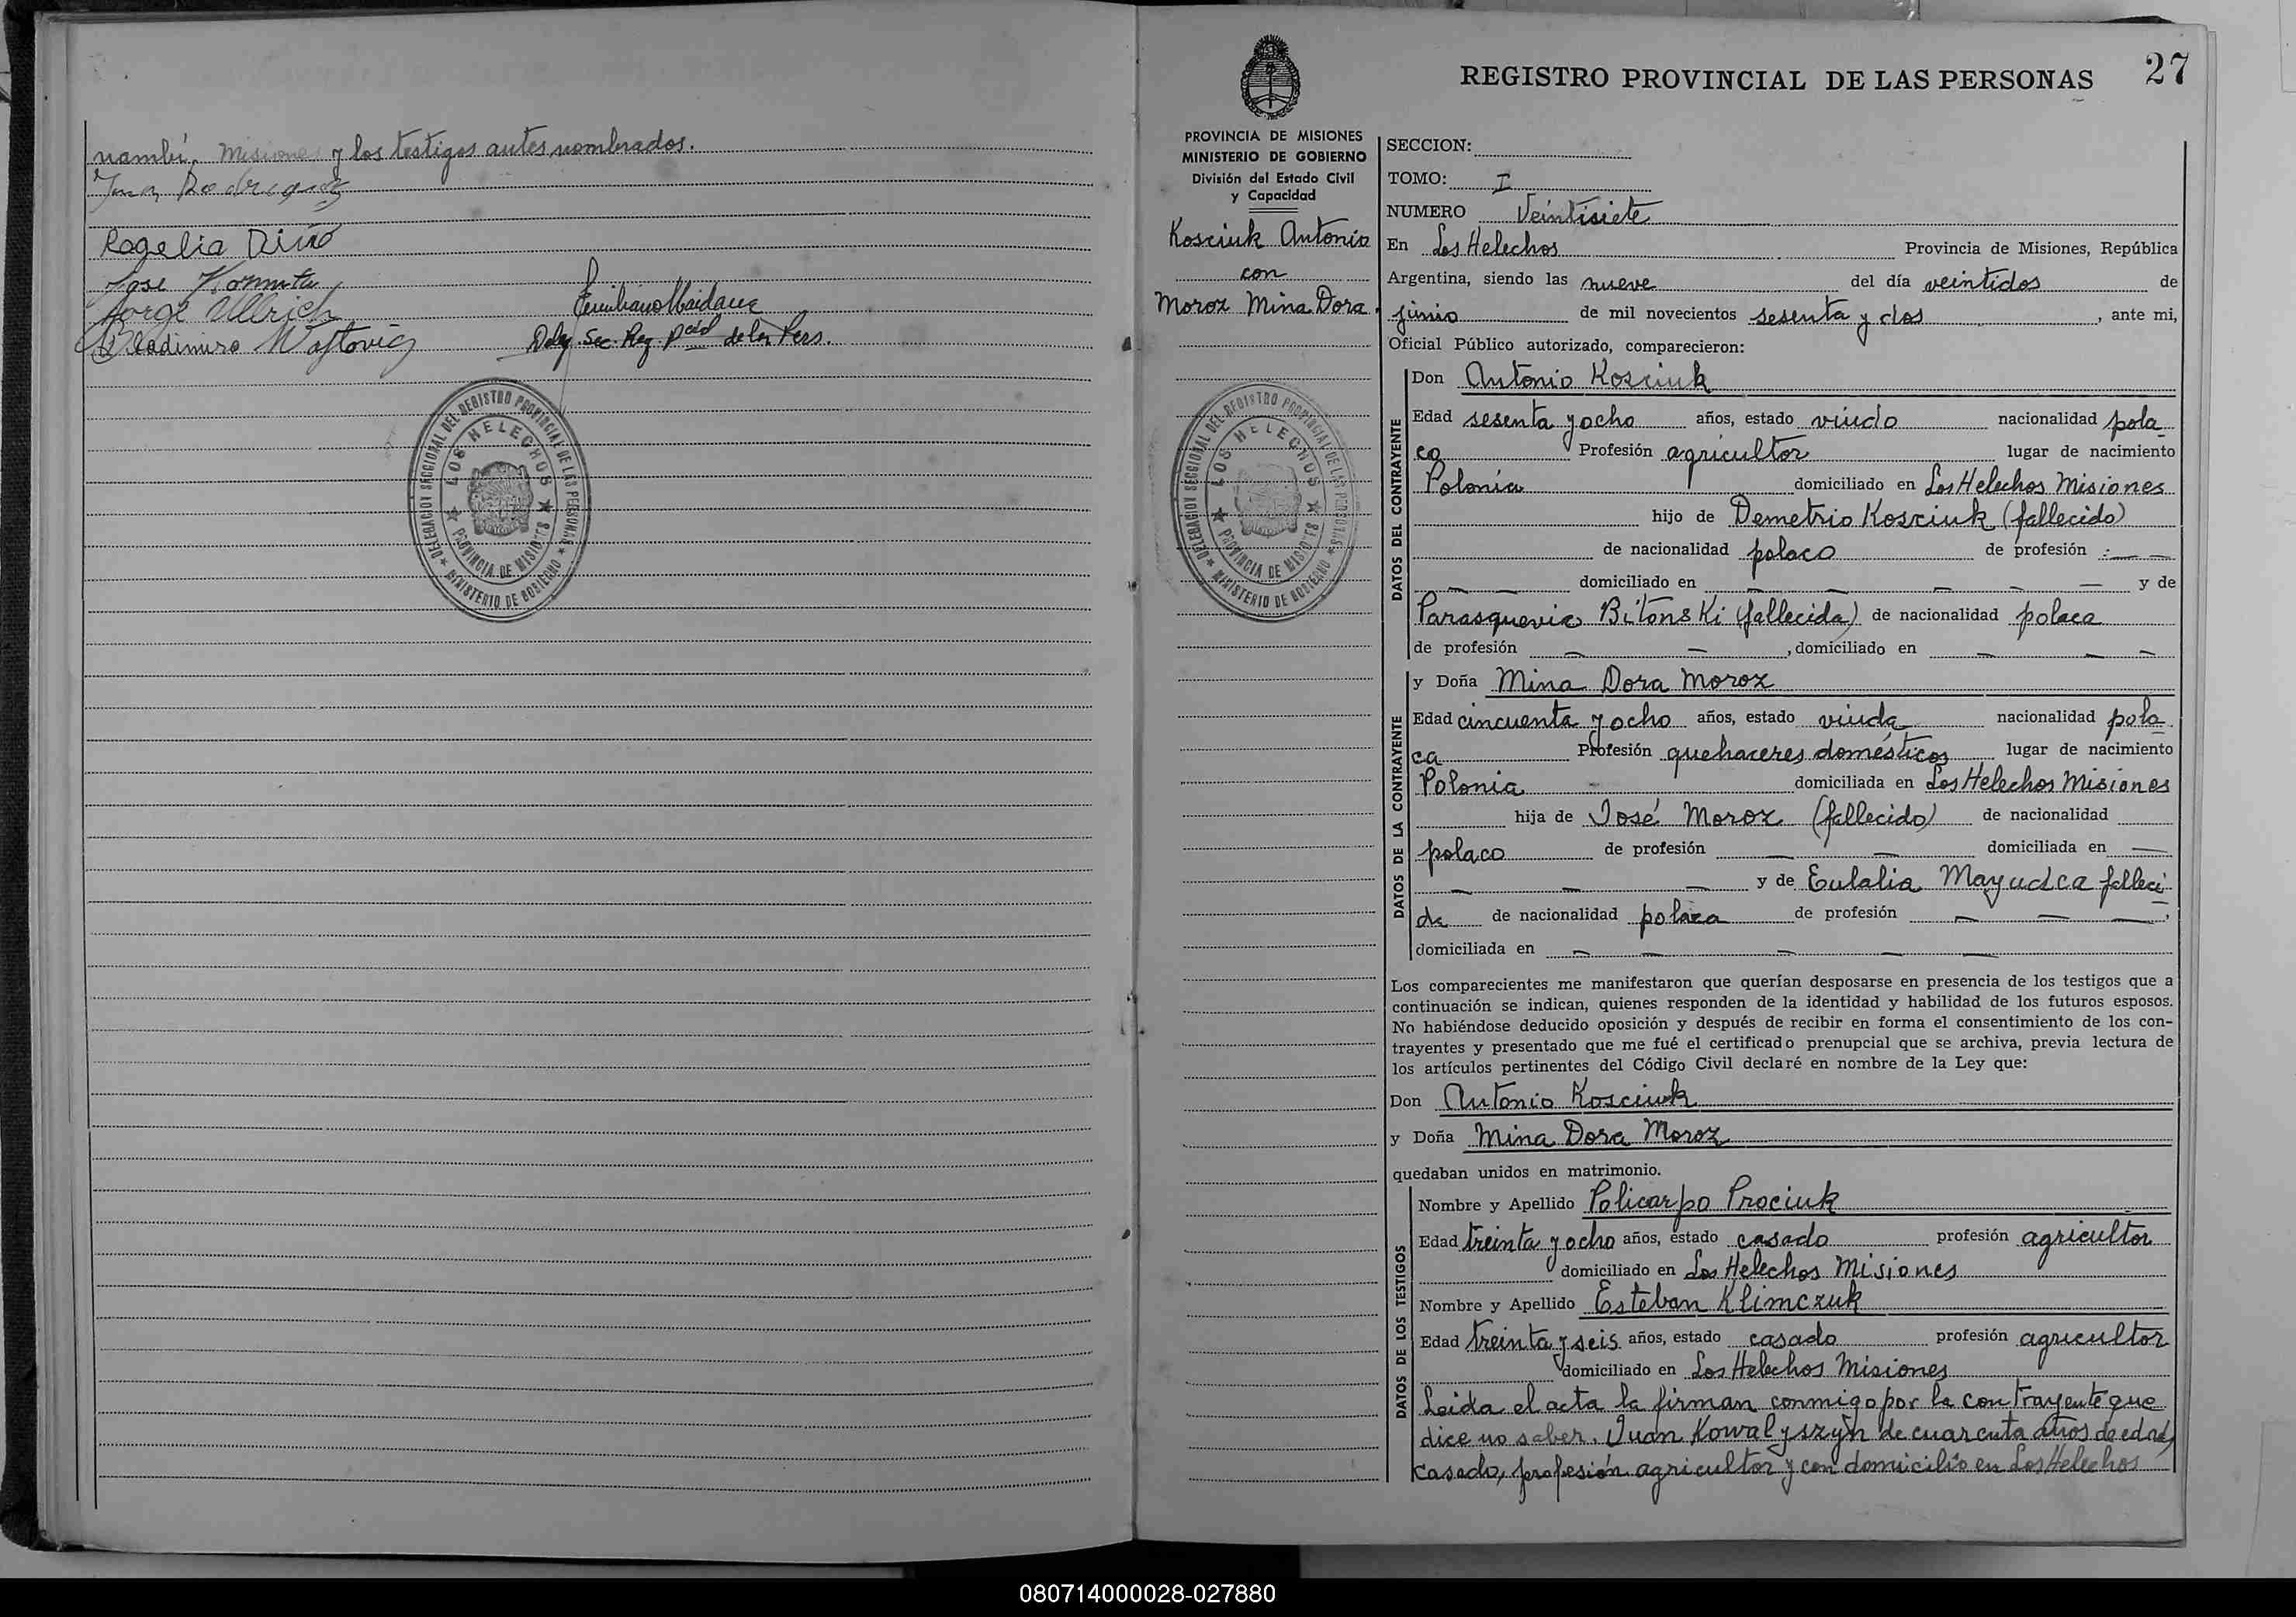 nambí, Misiones y los testigos antes nombrados.
Juan Rodriguez
Rogelia
Jose
Jorge Ullrich
Emiliano Maidana
Wladimiro
Deleg. Sec. Reg. Pcial de las Pers.
DELEGACION SECCIONAL DEL REGISTRO PROVINCIAL DE LAS PERSONAS
LOS HELECHOS
PROVINCIA DE MISIONES
MINISTERIO DE GOBIERNO
27
REGISTRO PROVINCIAL DE LAS PERSONAS
PROVINCIA DE MISIONES
MINISTERIO DE GOBIERNO
División del Estado Civil
y Capacidad
Kosciuk Antonio
con
Moroz Mina Dora.
DELEGACION SECCIONAL DEL REGISTRO PROVINCIAL DE LAS PERSONAS
LOS HELECHOS
PROVINCIA DE MISIONES
MINISTERIO DE GOBIERNO
SECCION:
TOMO: I
NUMERO Veintisiete
En Los Helechos Provincia de Misiones, República
Argentina, siendo las nueve del día veintidos de
junio de mil novecientos sesenta y dos, ante mi,
Oficial Público autorizado, comparecieron:
DATOS DEL CONTRAYENTE
Don Antonio Kosciuk
Edad sesenta y ocho años, estado viudo nacionalidad pola-
ca Profesión agricultor lugar de nacimiento
Polonia domiciliado en Los Helechos Misiones
hijo de Demetrio Kosciuk (fallecido)
de nacionalidad polaco de profesión :— —
— — domiciliado en — — — — — y de
Parasquevia Bitonski (fallecida) de nacionalidad polaca
de profesión — —, domiciliado en — — —
DATOS DE LA CONTRAYENTE
y Doña Mina Dora Moroz
Edad cincuenta y ocho años, estado viuda nacionalidad pola-
ca Profesión quehaceres domésticos lugar de nacimiento
Polonia domiciliada en Los Helechos Misiones
hija de José Moroz (fallecido) de nacionalidad
polaco de profesión — — domiciliada en —
— — — y de Eulalia Mayudca falleci-
da de nacionalidad polaca de profesión — — —,
domiciliada en — — — — —
Los comparecientes me manifestaron que querían desposarse en presencia de los testigos que a
continuación se indican, quienes responden de la identidad y habilidad de los futuros esposos.
No habiéndose deducido oposición y después de recibir en forma el consentimiento de los con-
trayentes y presentado que me fué el certificado prenupcial que se archiva, previa lectura de
los artículos pertinentes del Código Civil declaré en nombre de la Ley que:
Don Antonio Kosciuk
y Doña Mina Dora Moroz
quedaban unidos en matrimonio.
DATOS DE LOS TESTIGOS
Nombre y Apellido Policarpo Prociuk
Edad treinta y ocho años, estado casado profesión agricultor
domiciliado en Los Helechos Misiones
Nombre y Apellido Esteban Klimczuk
Edad treinta y seis años, estado casado profesión agricultor
domiciliado en Los Helechos Misiones
Leida el acta la firman conmigo por la contrayente que
dice no saber, Juan Kowalyszyn de cuarenta años de edad,
casado, profesión agricultor y con domicilio en Los Helechos
080714000028-027880